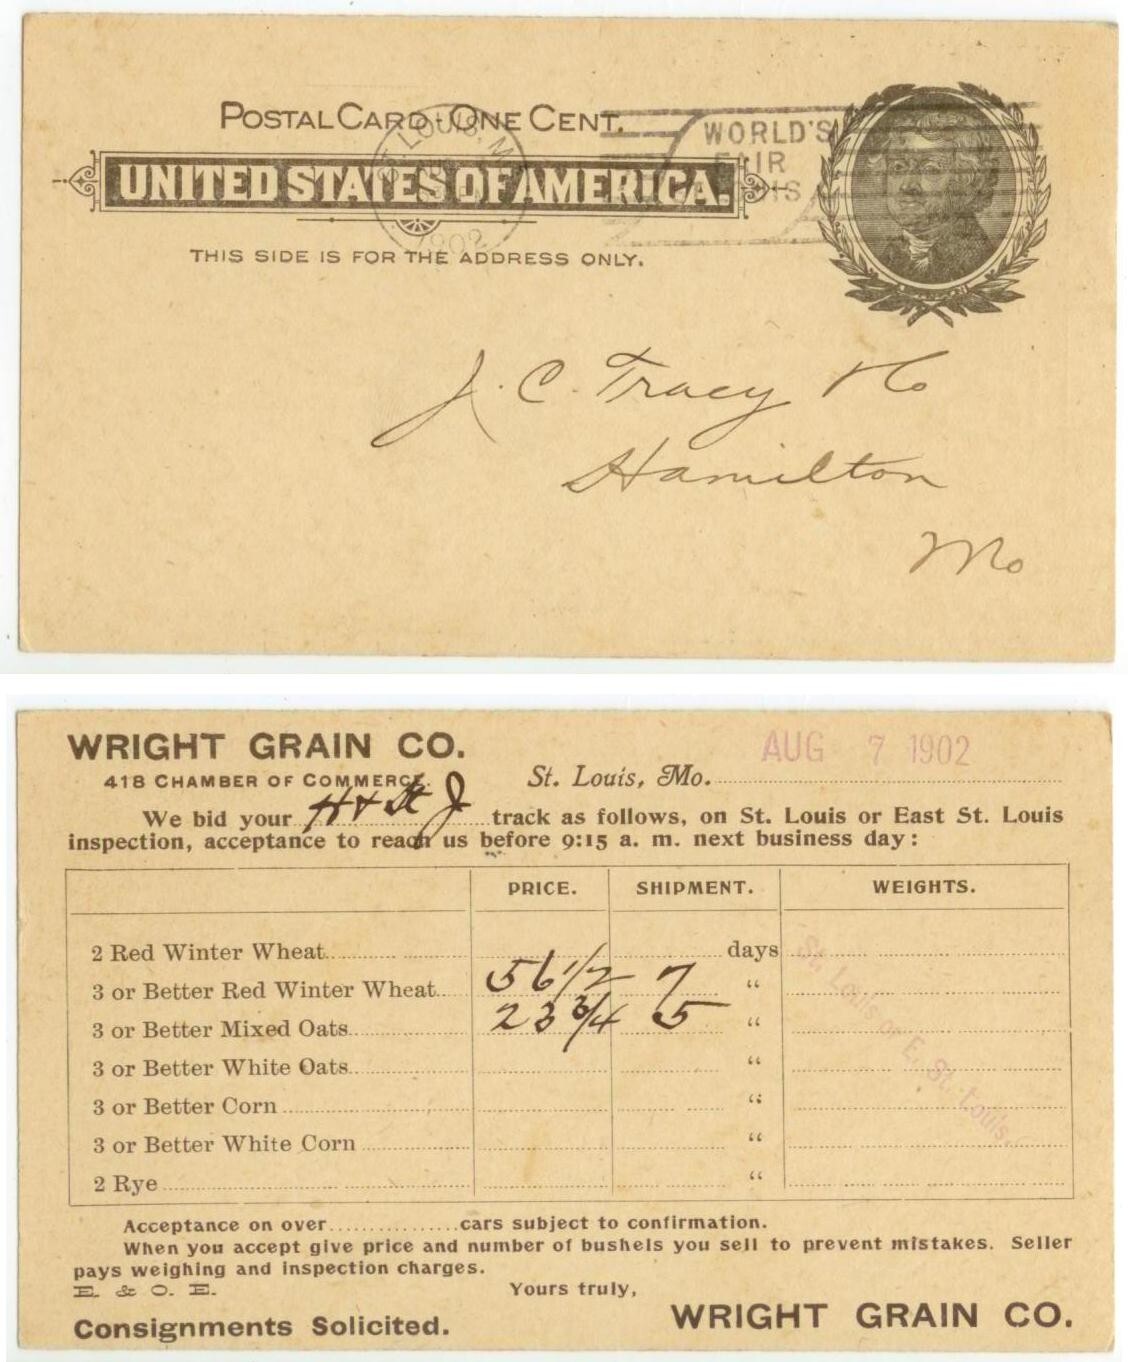 POSTAL CARD - ONE CENT.
UNITED STATES OF AMERICA.
THIS SIDE IS FOR THE ADDRESS ONLY.
ST. LOUIS, M
1902
WORLD'S
FAIR
J. C. Tracy & Co
Hamilton
Mo
WRIGHT GRAIN CO.
418 CHAMBER OF COMMERCE.
St. Louis, Mo. AUG 7 1902
We bid your H & St J track as follows, on St. Louis or East St. Louis
inspection, acceptance to reach us before 9:15 a. m. next business day:
PRICE. SHIPMENT. WEIGHTS.
2 Red Winter Wheat days
3 or Better Red Winter Wheat 56 1/2 7 "
3 or Better Mixed Oats 23 3/4 5 "
3 or Better White Oats "
3 or Better Corn "
3 or Better White Corn "
2 Rye "
St. Louis or E. St. Louis.
Acceptance on over................cars subject to confirmation.
When you accept give price and number of bushels you sell to prevent mistakes. Seller
pays weighing and inspection charges.
E. & O. E. Yours truly,
Consignments Solicited. WRIGHT GRAIN CO.